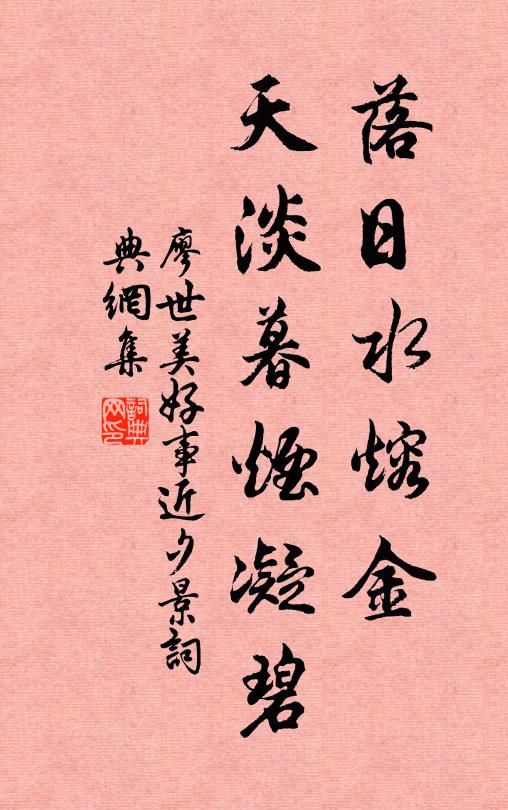 落日水熔金
天淡暮煙凝碧
廖世美好事近夕景詞
典網集
詞典
网印